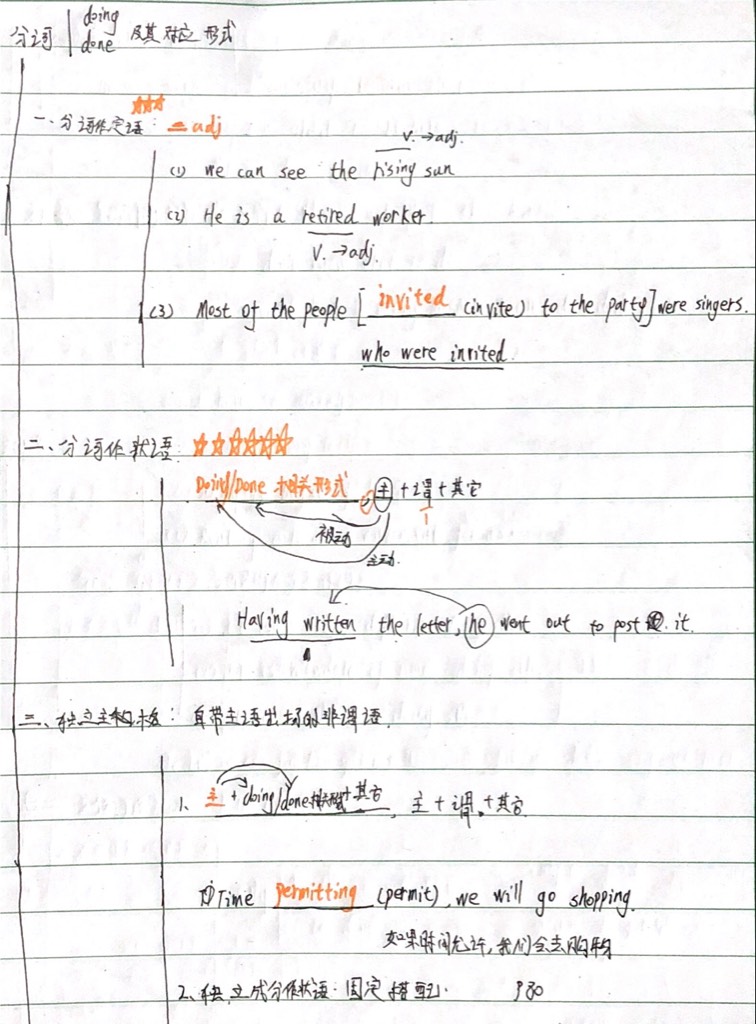 分词 doing
done 及其对应形式
一、分词作定语: = adj
v. → adj.
(1) we can see the rising sun
(2) He is a retired worker
V. → adj.
(3) Most of the people [ invited (invite) to the party] were singers.
who were invited.
二、分词作状语:
Doing/Done 相关形式 , 主 + 谓 + 其它
被动
主动
Having written the letter, he went out to post it.
三、独立主格: 自带主语出场的非谓语.
1、主 + doing/done 相关形式 + 其它, 主 + 谓 + 其它
① Time permitting (permit), we will go shopping.
如果时间允许, 我们会去购物
2、独立成分作状语: 固定搭配. P30